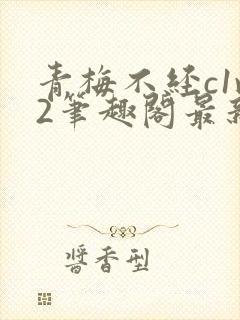 青梅不经c1v
2筆趣阁最新
醬香型